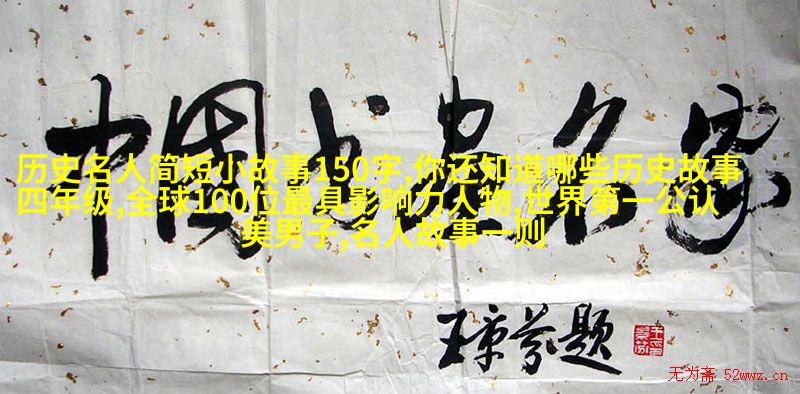 中国书画名家
历史名人简短小故事150字,你还知道哪些历史故事
四年级,全球100位最具影响力人物,世界第一公认
美男子,名人故事一则
王京芬题
无为斋 52wwz.cn